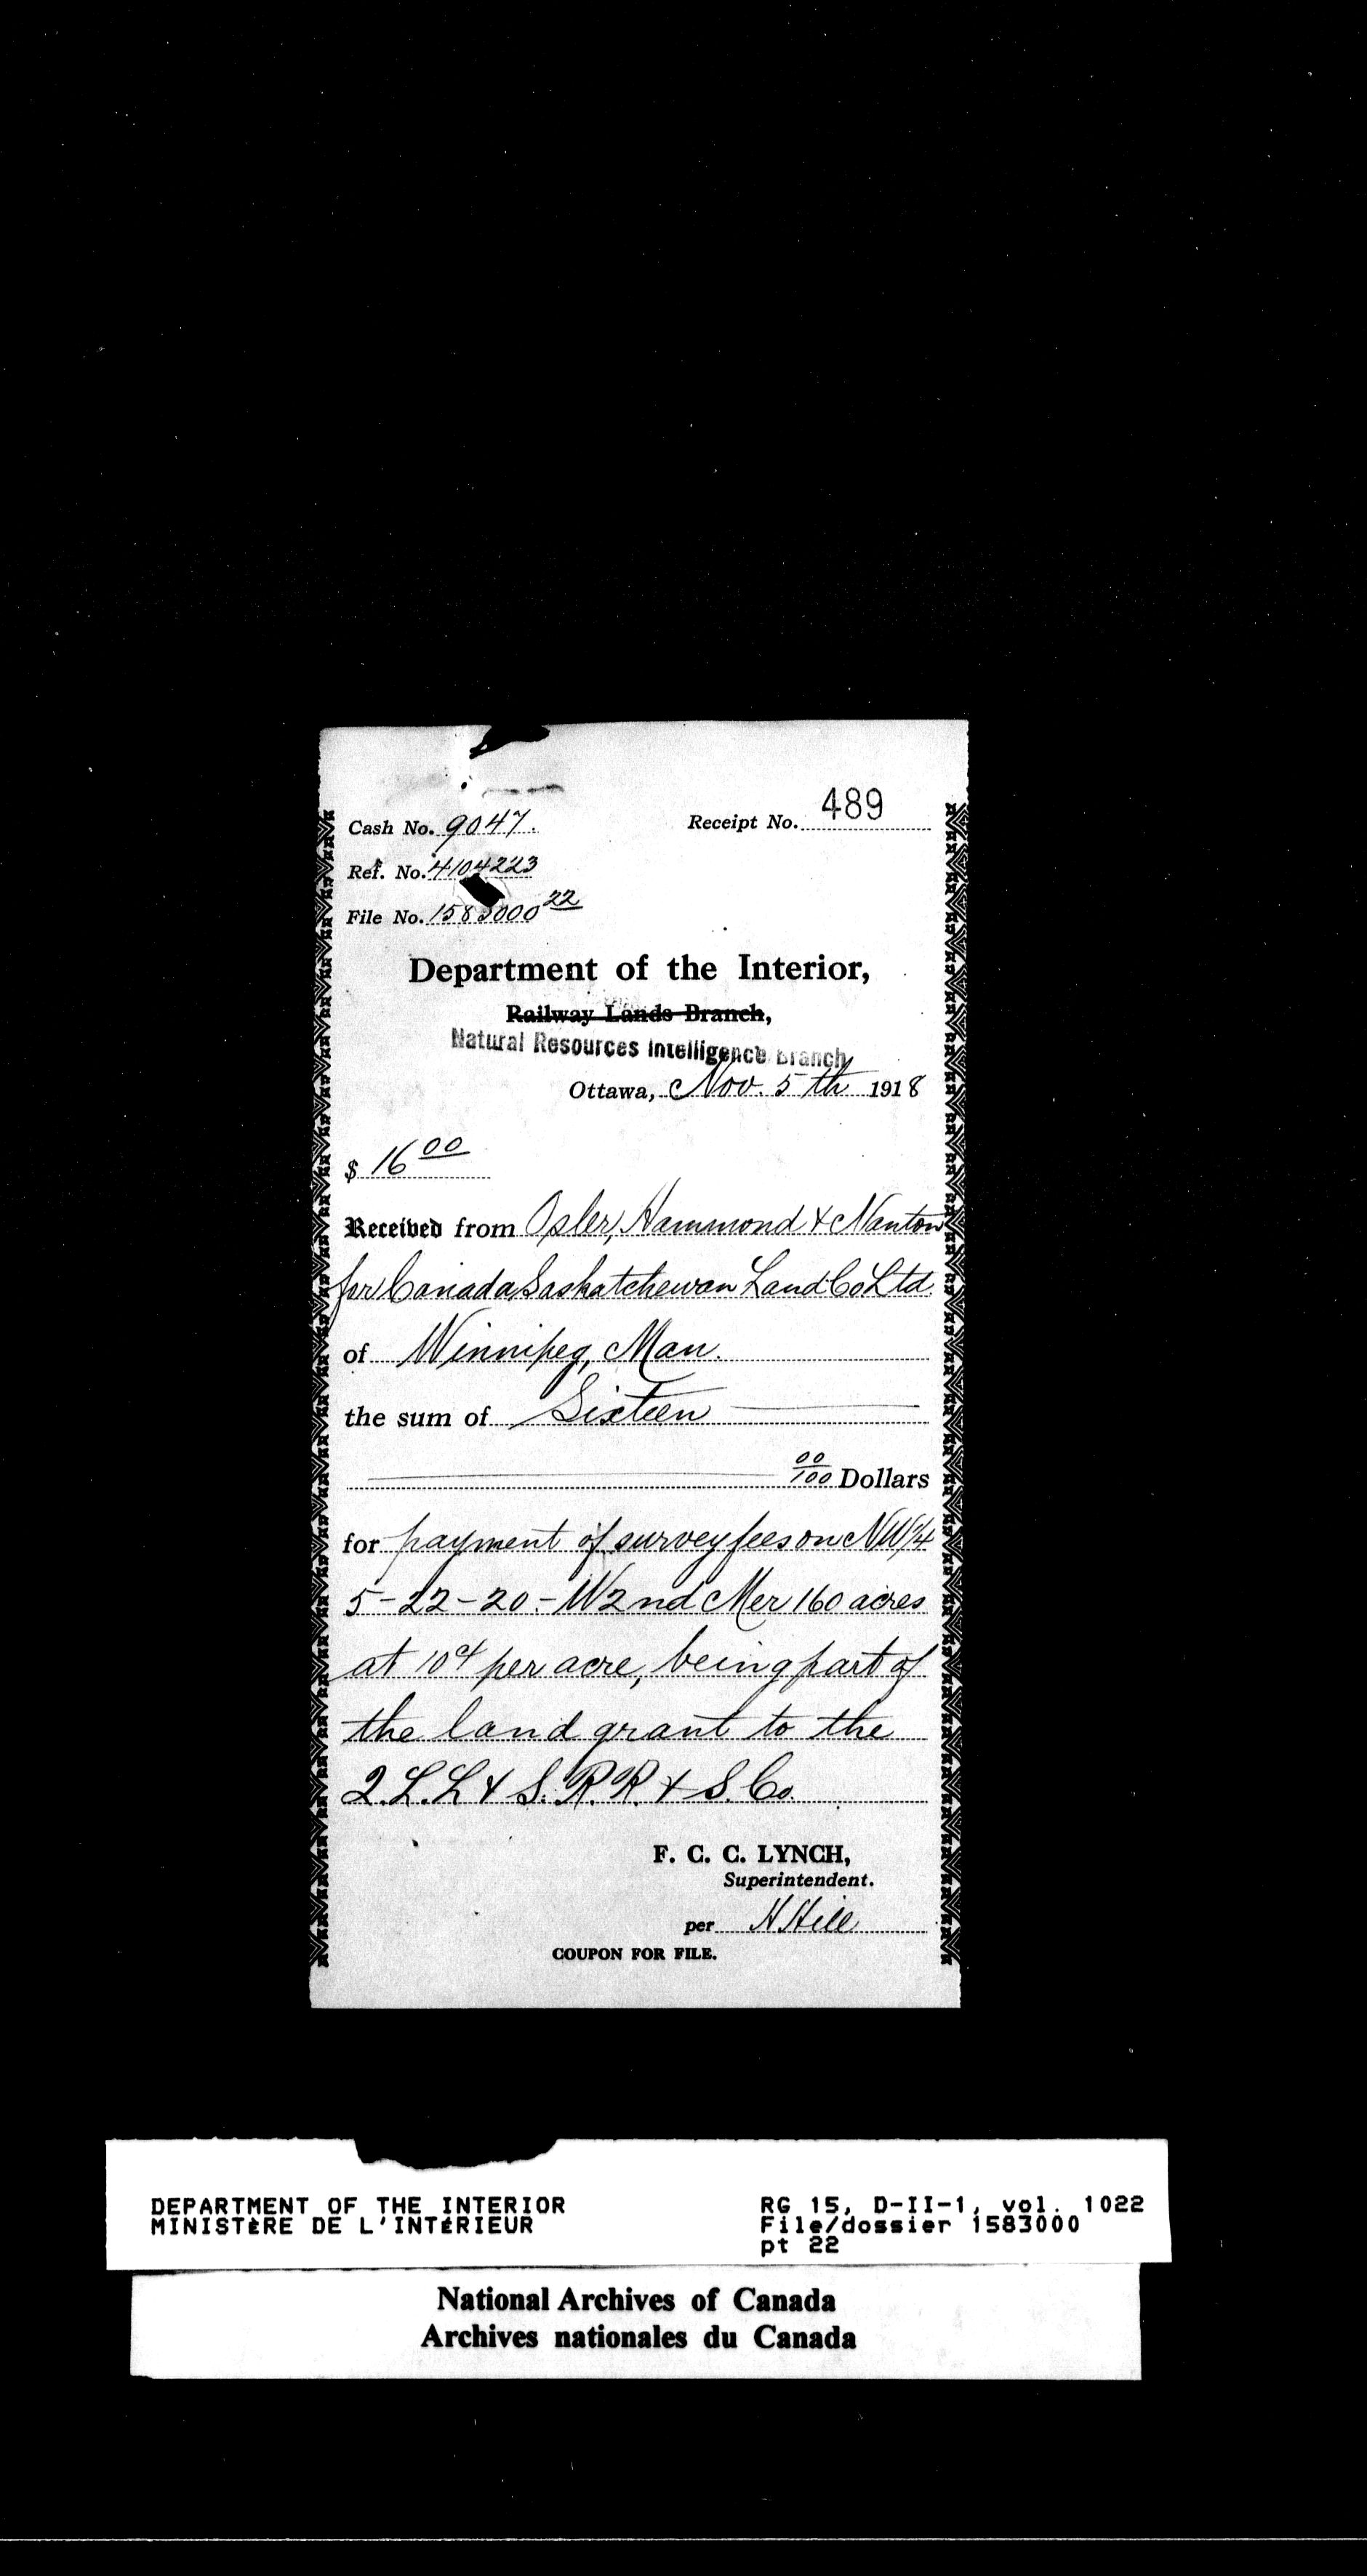 489
Cash No. 9047.
Receipt No.
Ref. No. 4104223
File No. 1583000 22
Department of the Interior,
Railway Lands Branch,
Natural Resources Intelligence Branch
Ottawa, Nov. 5th 1918
$ 16 00
Received from Osler, Hammond & Nanton
for Canada Saskatchewan Land Co Ltd.
of Winnipeg, Man.
the sum of Sixteen
00/100 Dollars
for payment of survey fees on NW 1/4
5-22-20-W2nd Mer 160 acres
at 10¢ per acre, being part of
the land grant to the
Q.L.L & S. R.R. & S. Co.
F. C. C. LYNCH,
Superintendent.
per H Hill
COUPON FOR FILE.
DEPARTMENT OF THE INTERIOR
MINISTÈRE DE L'INTÉRIEUR
RG 15, D-II-1, vol. 1022
File/dossier 1583000
pt 22
National Archives of Canada
Archives nationales du Canada